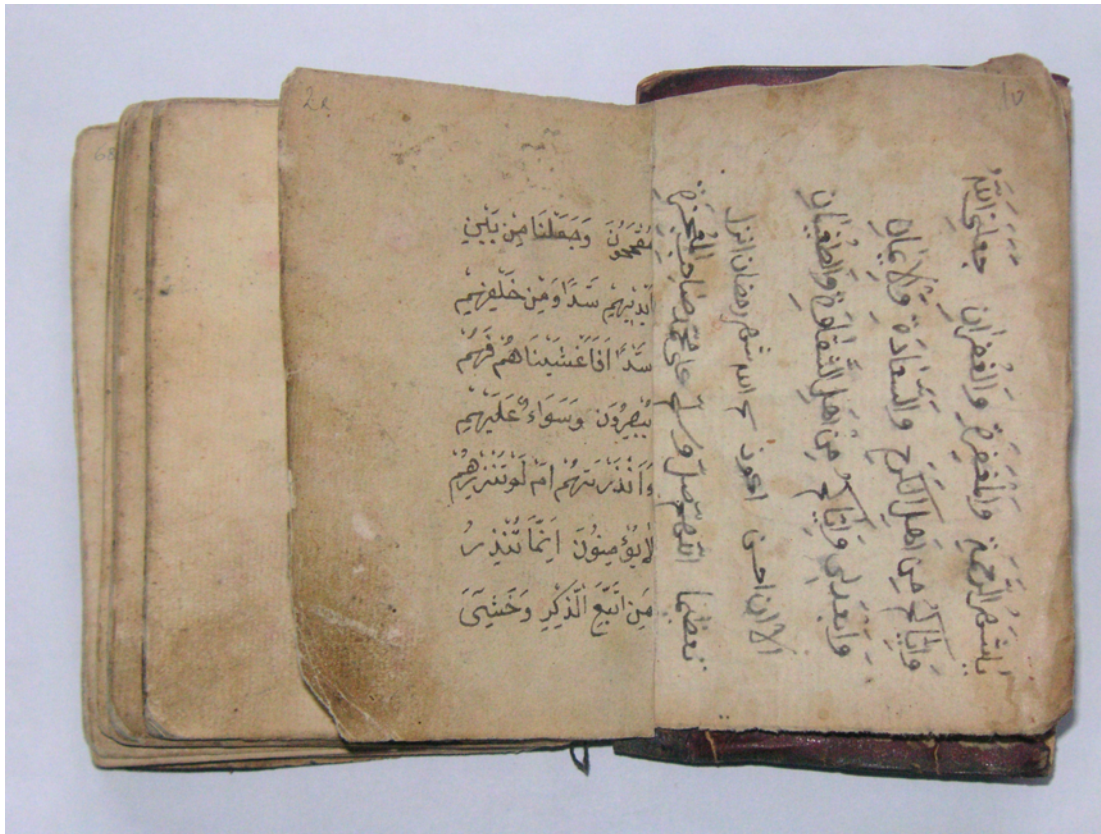 2a
مُقْمَحُونَ وَجَعَلْنَا مِنْ بَيْنِ
اَيْدِيهِمْ سَدًّا وَمِنْ خَلْفِهِمْ
سَدًّا فَاَغْشَيْنَاهُمْ فَهُمْ
يُبْصِرُونَ وَسَوَاءٌ عَلَيْهِمْ
ءَاَنْذَرْتَهُمْ اَمْ لَمْ تُنْذِرْهُمْ
لَا يُؤْمِنُونَ اِنَّمَا تُنْذِرُ
مَنِ اتَّبَعَ الذِّكْرَ وَخَشِيَ
1b
ياشهر الرحمة والمغفرة والغفران جعلني الله
واياكم من اهل الكرم والسعادة والايمان
وابعدني واياكم من اهل الشقاوة والطغيان
الا ان احسن شهر رمضان انزل
تعظيما اللهم صل وسلم على محمد صاحب المعجزة
68